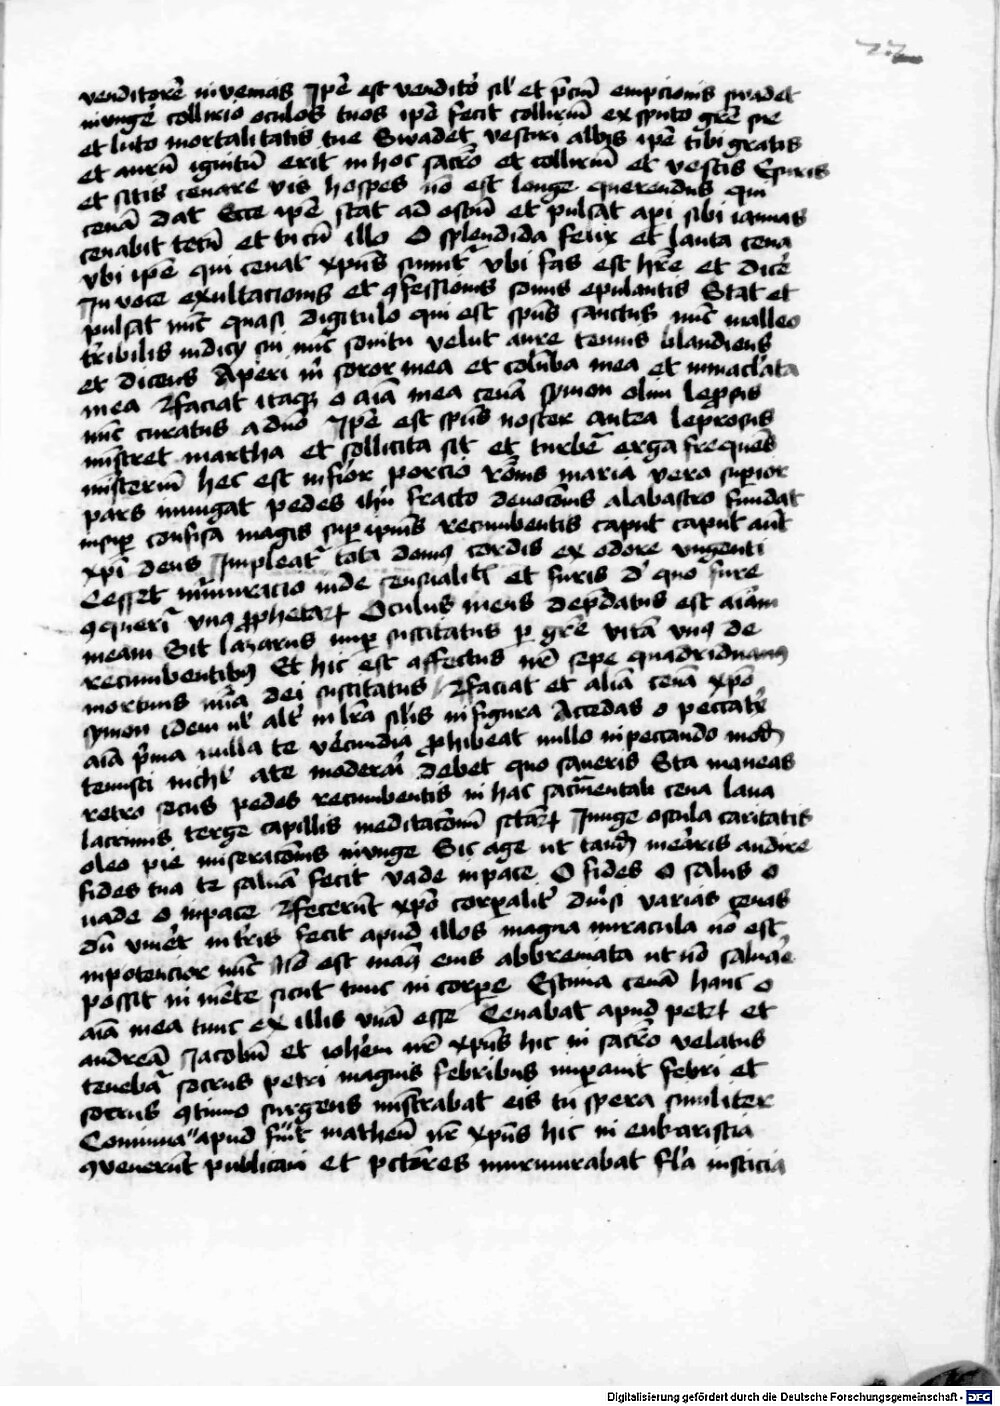 77
venditorē inveniās Ipē est venditor sil' et p̄ciū empcionis swadet
inunge collirio oculos tuos ipē fecit colliriū ex sputo gr̄e sue
et luto mortalitatis tue Swadet vestiri albis ipē tibi gratis
et aurū ignitū erit in hoc sacr̄o et colliriū et vestis Esuris
et sitis cenare vis hospes nō est longe querendus qui
cenā dat Ecce ipē stat ad ostiū et pulsat api sibi ianuas
cenabit tecū et tu cū illo O splendida felix et lauta cena
vbi ipē qui cenat xpūs sumit᷑ vbi fas est hr̄e et dicē
In voce exultacionis et ꝯfessionis sonus epulantis Stat et
pulsat nūc quasi digitulo qui est spūs sanctus nūc malleo
tribilis iudicij sui nūc sonitu velut aure tenuis blandiens
et dicens Aperi m̄ soror mea et colūba mea et inmac'lata
mea Ꝛfaciat itaqꝫ o aiā mea cenā symon olim leprosus
nūc curatus a dn̄o Ipē est spūs noster antea leprosus
mīstret martha et sollicita sit et turbē erga frequēs
mīsteriū hec est inf'ior porcio rōnis maria vera superior
pars inungat pedes ih̄u fracto deuocōnis alabastro fundat
insuꝑ confisa magis suꝑ ipīus recumbentis caput caput aūt
xp̄i deus Impleat᷑ tota domꝰ cordis ex odore vngenti
Cesset mūmuracio inde sensualit' et furis d' quo fure
ꝯquerit᷑ vnꝰ ꝓphetaꝝ Oculus meus dep̄datus est aiām
meam Sit lazarus nuꝑ suscitatus ꝑ gr̄e vitā vnꝰ de
recumbentibꝰ Et hic est affectus nr̄ sepe quadriduanꝰ
mortuus mīa dei suscitatus Ꝛfaciat et aliā cenā xp̄o
symon idem ul' alt' in lr̄a sil'is in figura Accedas o peccatrix
aiā p̄ma nulla te vercundia ꝓhibeat nullo in peccando modū
tenuisti nichil a te moderari debet quo saneris Sta maneas
retro secus pedes recumbentis in hac sacr̄mentali cena laua
lacrimis terge capillis meditacōnū sctāꝝ Iunge oscula caritatis
oleo pie miseracōnis inunge Sic age ut tandē mearis audire
fides tua te saluā fecit vade in pace O fides o salus o
uade o in pace Ꝛfecerūt xp̄o corꝑalit' diu'si varias cenas
dū viu'et in tr̄is fecit apud illos magna miracula nō est
inpotencior nūc Nō est manꝰ eius abbreuiata ut nō saluare
possit in mēte sicut tunc in corꝑe Estima cenā hanc o
aiā mea tunc ex illis vnā esse Cenabat apud petrꝝ et
andreā Iacobū et ioh̄em nr̄ xpūs hic in sacr̄o velatus
teneba᷑ socrus petri magnis febribus inꝑauit febri et
socrus ꝯtinuo surgens mīstrabat eis tu spera similiter
Conuiua apud mathm̄ nr̄ xpūs hic in eukaristia
ꝯuenerūt publicani et pctōres murmurabat fl'a iusticia
Digitalisierung gefördert durch die Deutsche Forschungsgemeinschaft - DFG